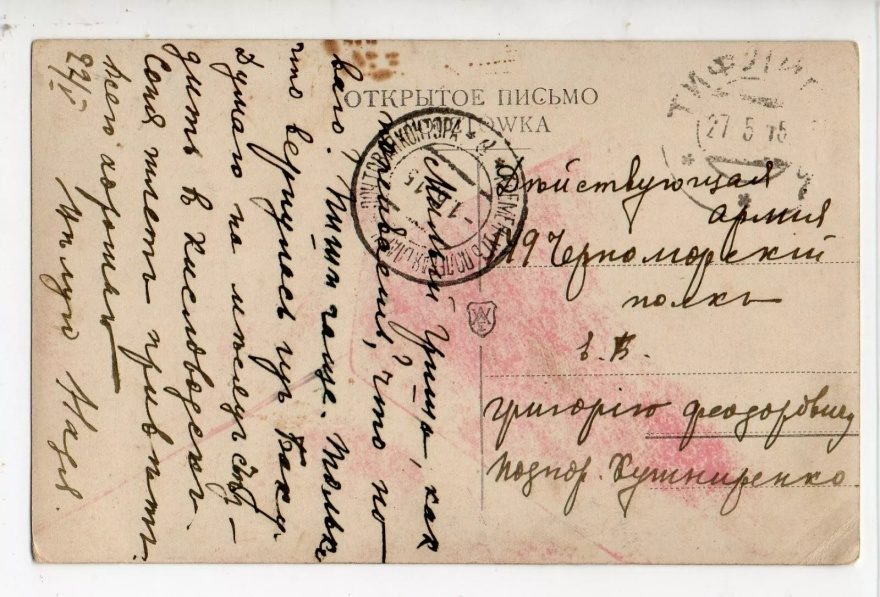 ОТКРЫТОЕ ПИСЬМО
OWKA
ТИФЛИС
27 5 15
ПОЧТОВАЯ КОНТОРА
Дѣйствующая
армія
Черноморскій
полкъ
Григорію Феодоровичу
Подпор. Кушниренко
Милый Гриша, как
поживаешь, что но
ваго? Пиши чаще. Только
что вернулась изъ Баку.
Думаю на мѣсяцъ
дить в Кисловодскъ.
Соня шлетъ привѣтъ.
Всего хорошаго
27/V Цѣлую Надя.